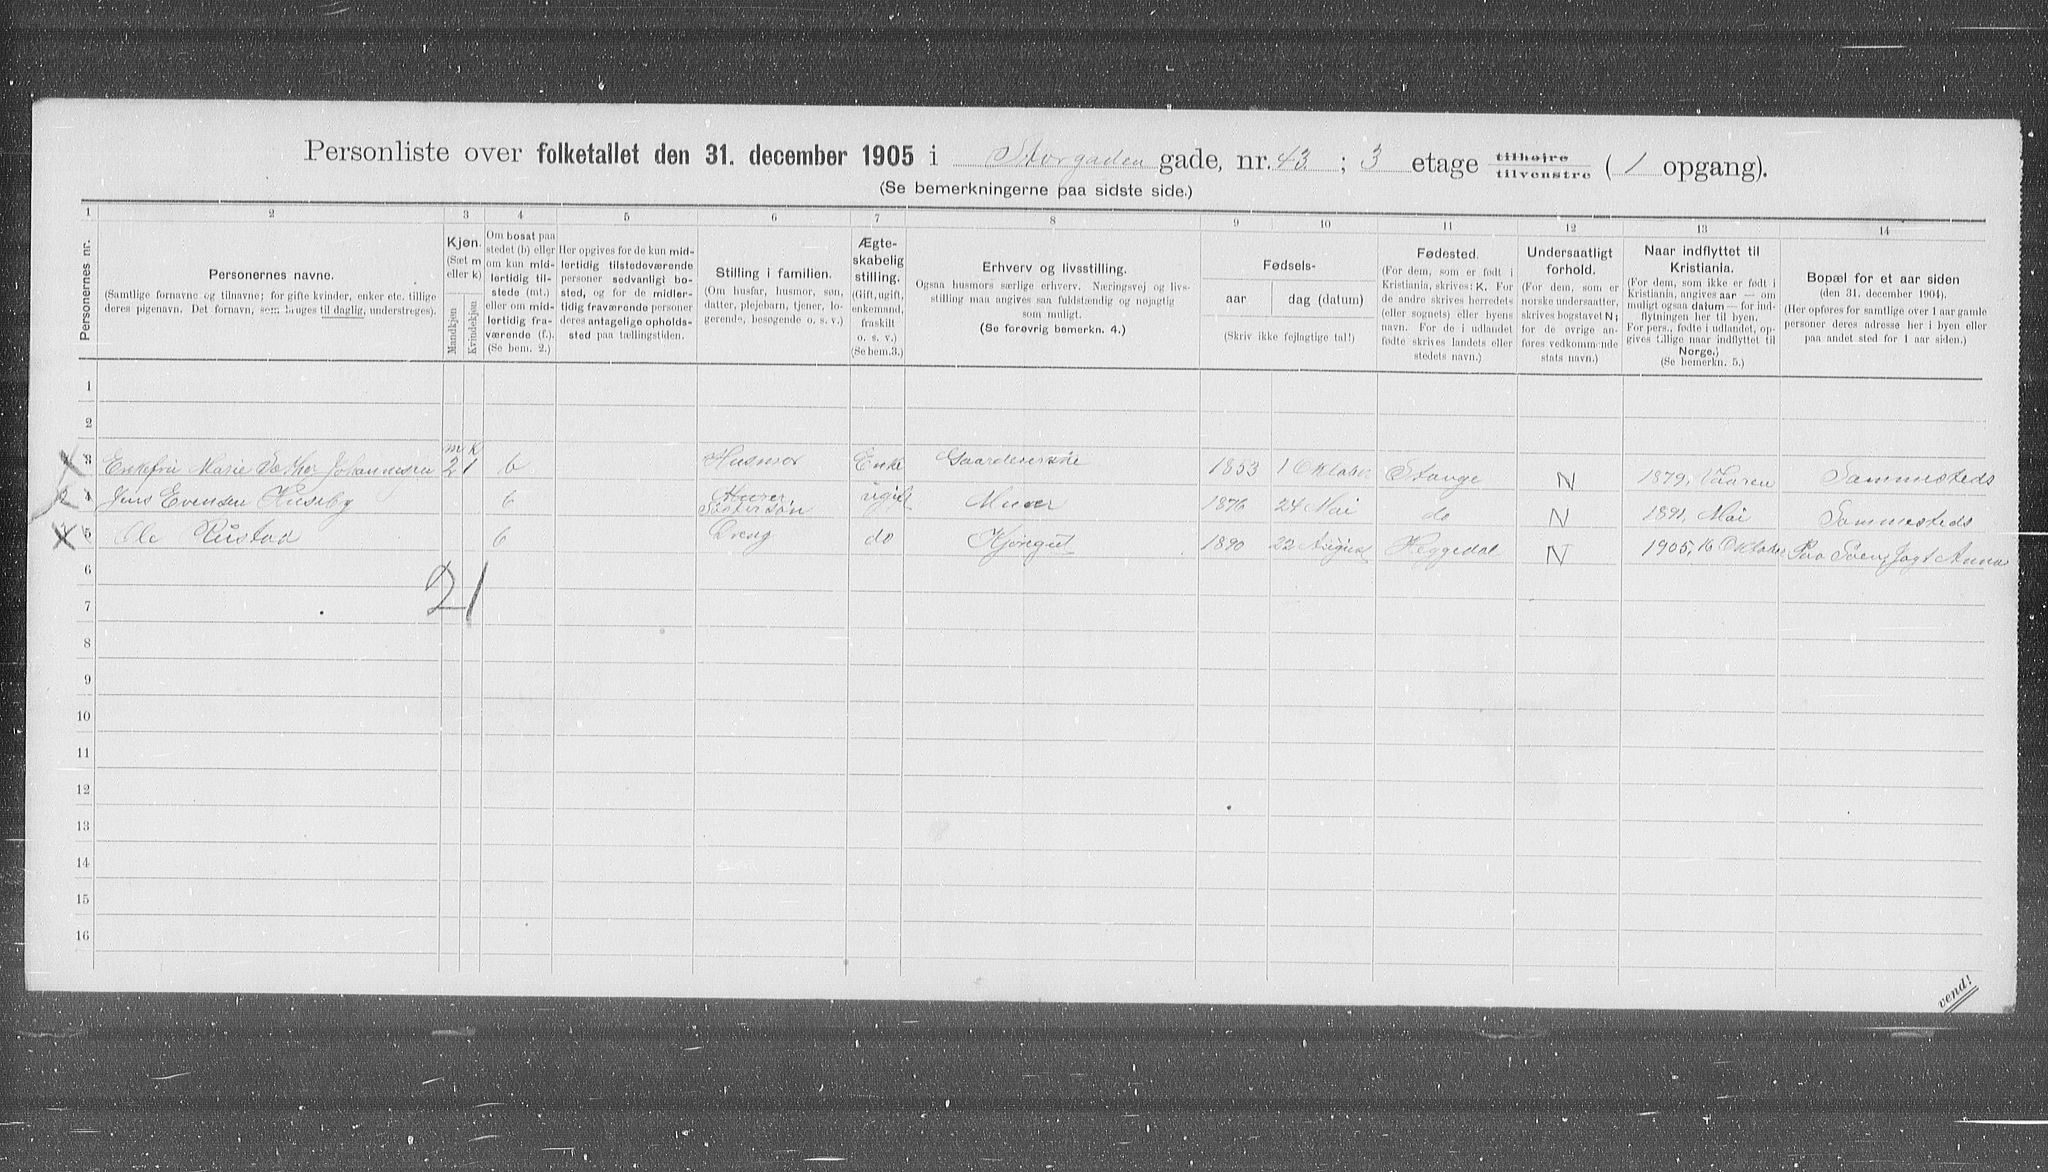 Personliste over folketallet den 31. december 1905 i Storgaden gade, nr. 43 ; 3 etage tilhøjre tilvenstre ( 1 opgang).
(Se bemerkningerne paa sidste side.)
1 2 3 4 5 6 7 8 9 10 11 12 13 14
Personernes nr.
Personernes navne.
(Samtlige fornavne og tilnavne; for gifte kvinder, enker etc. tillige
deres pigenavn. Det fornavn, som bruges til daglig, understreges).
Kjøn.
(Sæt m
eller k)
Mandkjøn
Kvindekjøn
Om bosat paa
stedet (b) eller
om kun mid-
lertidig til-
stede (mt.)
eller om mid-
lertidig fra-
værende (f.).
(Se bem. 2.)
Her opgives for de kun mid-
lertidig tilstedeværende
personer sedvanligt bo-
sted, og for de midler-
tidig fraværende personer
deres antagelige opholds-
sted paa tællingstiden.
Stilling i familien.
(Om husfar, husmor, søn,
datter, plejebarn, tjener, lo-
gerende, besøgende o. s. v.)
Ægte-
skabelig
stilling.
(Gift, ugift,
enkemand,
fraskilt
o. s. v.)
(Se bem.3.)
Erhverv og livsstilling.
Ogsaa husmors særlige erhverv. Næringsvej og livs-
stilling maa angives saa fuldstændig og nøjagtig
som muligt.
(Se forøvrig bemerkn. 4.)
Fødsels-
aar
dag (datum)
(Skriv ikke fejlagtige tal!)
Fødested.
(For dem, som er født i
Kristiania, skrives: K. For
de andre skrives herredets
(eller sognets) eller byens
navn. For de i udlandet
fødte skrives landets eller
stedets navn.)
Undersaatligt
forhold.
(For dem, som er
norske undersaatter,
skrives bogstavet N;
for de øvrige an-
føres vedkommende
stats navn.)
Naar indflyttet til
Kristiania.
(For dem, som ikke er født i
Kristiania, angives aar — om
muligt ogsaa datum — for ind-
flytningen her til byen.
For pers., fødte i udlandet, op-
gives tillige naar indflyttet til
Norge.)
(Se bemerkn. 5.)
Bopæl for et aar siden
(den 31. december 1904).
(Her opføres for samtlige over 1 aar gamle
personer deres adresse her i byen eller
paa andet sted for 1 aar siden.)
1
2
m k
3 Enkefru Marie Sæther Johannesen 2 1 b Husmor Enke 1853 1 Oktober Stange N 1879, Vaaren Sammesteds
2 4 Jens Evensen Huseby b Søstersøn ugift Murer 1876 24 Mai do N 1891, Mai Sammesteds
5 Ole Rustad b Dreng do 1890 22 August Heggedal N 1905, 16 Oktober Paa Jagt Anna
6
2 1
7
8
9
10
11
12
13
14
15
16
vend!